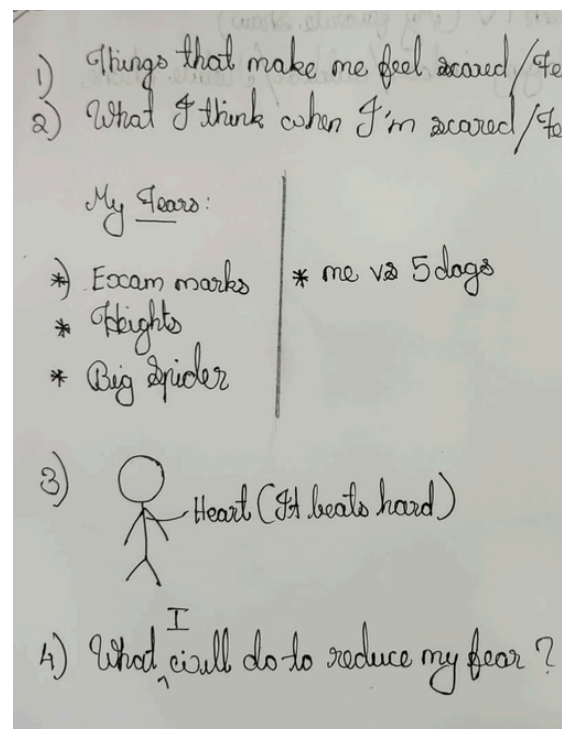 1) Things that make me feel scared/Fe
2) What I think when I'm scared/Fe
My Fears:
*) Exam marks
* Heights
* Big Spider
* me vs 5 dogs
3)
Heart (It beats hard)
4) What I will do to reduce my fear?